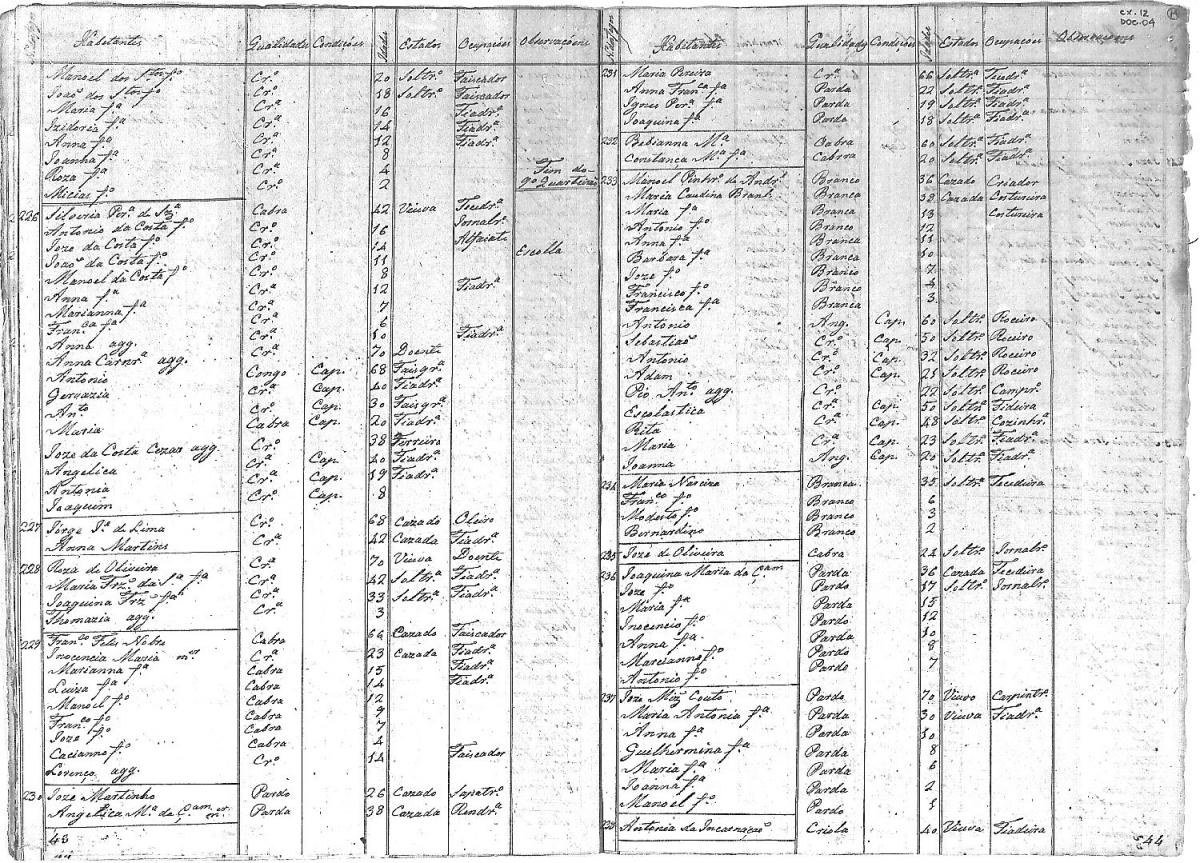 CX. 12
DOC. 04
Fogos Habitantes Qualidades Condições Idades Estados Ocupações Observações
Manoel dos Stos fo Cr.o 20 Soltr.o Faiscador
João dos Stos fo Cr.o 18 Soltr.o Faiscador
Maria f.a Cr.a 16 Fiadr.a
Izidoria f.a Cr.a 14 Fiadr.a
Anna f.a Cr.a 12 Fiadr.a
Joanna f.a Cr.a 8
Roza f.a Cr.a 4
Micias f.o Cr.o 2 Fim do 9o Quarteirão
226 Silveria Per.a de Sz.a Cabra 42 Viuva Tecedr.a
Antonio da Costa f.o Cr.o 16 Jornalr.o
Joze da Costa f.o Cr.o 14 Alfaiate
João da Costa f.o Cr.o 11 Escolla
Manoel da Costa f.o Cr.o 8
Anna f.a Cr.a 12 Fiadr.a
Marianna f.a Cr.a 7
Fran.ca f.a Cr.a 6
Anna agg. Cr.a 50 Fiadr.a
Anna Carnr.a agg. Cr.a 70 Doente
Antonio Congo Cap. 68 Faisgr.a
Gervazia Cr.a Cap. 40 Fiadr.a
An.to Cr.o Cap. 30 Faisgr.a
Maria Cabra Cap. 20 Fiadr.a
Joze da Costa Cezar agg. Cr.o 38 Ferreiro
Angelica Cr.a Cap. 40 Fiadr.a
Antonia Cr.a Cap. 19 Fiadr.a
Joaquim Cr.o Cap. 8
227 Jorge J.a de Lima Cr.o 68 Cazado Oleiro
Anna Martins Cr.a 42 Cazada Fiadr.a
228 Roza de Oliveira Cr.a 70 Viuva Doente
Maria Frz.a da S.a f.a Cr.a 42 Soltr.a Fiadr.a
Joaquina Frz f.a Cr.a 33 Soltr.a Fiadr.a
Thomazia agg. Cr.a 3
229 Fran.co Felis Nobre Cabra 66 Cazado Faiscador
Inocencia Maria m.er Cr.a 23 Cazada Fiadr.a
Marianna f.a Cabra 15 Fiadr.a
Luiza f.a Cabra 14 Fiadr.a
Manoel f.o Cabra 12
Fran.co f.o Cabra 9
Joze f.o Cabra 7
Cacianno f.o Cabra 4
Lorenço agg. Cr.o 14 Faiscador
230 Joze Martinho Pardo 26 Cazado Sapatr.o
Angelica M.a da C.am m.er Parda 38 Cazada Rendr.a
43
Fogos Habitantes Qualidades Condições Idades Estados Ocupações Observações
231 Maria Pereira Cr.a 66 Soltr.a Tecedr.a
Anna Fran.ca f.a Parda 22 Soltr.a Fiadr.a
Ignes Per.a f.a Parda 19 Soltr.a Fiadr.a
Joaquina f.a Parda 18 Soltr.a Fiadr.a
232 Bebianna M.a Cabra 60 Soltr.a Fiadr.a
Constança M.a f.a Cabra 20 Soltr.a Fiadr.a
233 Manoel Pinhr.o de Andr.e Branco 36 Cazado Criador
Maria Caudina Brant. Branca 38 Cazada Costureira
Maria f.a Branca 13 Costureira
Antonio f.o Branco 12
Anna f.a Branca 11
Barbara f.a Branca 10
Joze f.o Branco 7
Francisco f.o Branco 4
Francisca f.a Branca 3
Antonio Ang. Cap. 60 Soltr.o Roceiro
Sebastião Cr.o Cap. 50 Soltr.o Roceiro
Antonio Cr.o Cap. 32 Soltr.o Roceiro
Adam Cr.o Cap. 25 Soltr.o Roceiro
Pio An.to agg. Cr.o 22 Soltr.o Campr.o
Escolastica Cr.a Cap. 50 Soltr.a Fideira
Rita Cr.a Cap. 48 Soltr.a Cozinhr.a
Maria Cr.a Cap. 23 Soltr.a Fiadr.a
Joanna Ang. Cap. 20 Soltr.a Fiadr.a
234 Maria Narciza Branca 35 Soltr.a Tecedeira
Fran.co f.o Branco 6
Modesto f.o Branco 3
Bernardino Branco 2
235 Joze de Oliveira Cabra 24 Soltr.o Jornalr.o
236 Joaquina Maria da C.am Parda 36 Cazada Tecedeira
Joze f.o Pardo 17 Soltr.o Jornalr.o
Maria f.a Parda 15
Inocencio f.o Pardo 12
Anna f.a Parda 10
Marcianno f.o Pardo 8
Antonio f.o Pardo 7
237 Joze Miz Couto Pardo 70 Viuvo Carpintr.o
Maria Antonia f.a Parda 30 Viuva Fiadr.a
Anna f.a Parda 10
Guilhermina f.a Parda 8
Maria f.a Parda 6
Joanna f.a Parda 2
Manoel f.o Pardo 1
238 Antonia da Incarnação Criola 40 Viuva Fiadeira
44